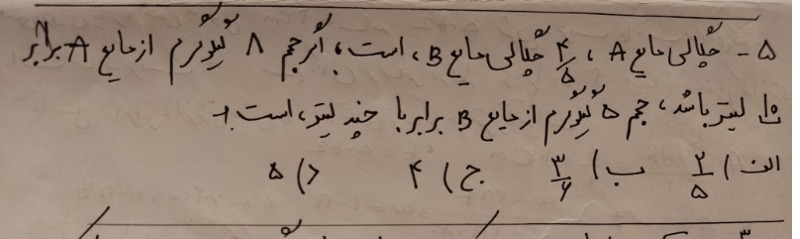 ۵ - چگالی مایع A ، ۴/۵ چگالی مایع B ، است ، اگر حجم ۸ کیلوگرم از مایع A برابر
لیتر باشد ، حجم ۵ کیلوگرم از مایع B برابر با چند لیتر ، است ؟
الف ) ۲/۵ ب ) ۳/۶ ج ) ۴ د ) ۵